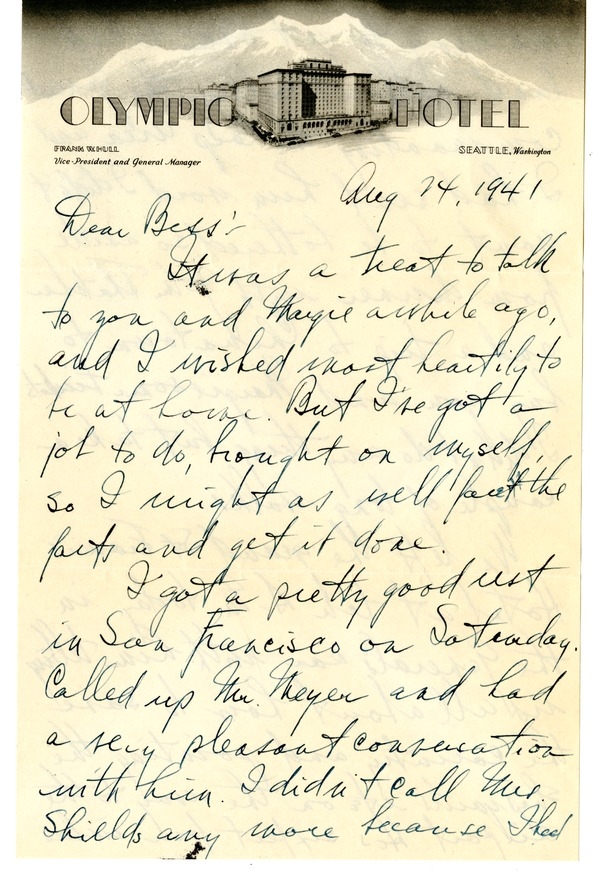 OLYMPIC HOTEL
FRANK W. HULL
Vice-President and General Manager
SEATTLE, Washington
Aug 24, 1941
Dear Bess:-
It was a treat to talk
to you and Margie awhile ago,
and I wished most heartily to
be at home. But I've got a
job to do, brought on myself,
so I might as well face the
facts and get it done.
I got a pretty good rest
in San Francisco on Saturday.
Called up Mr. Meyer and had
a very pleasant conversation
with him. I didn't call Mrs.
Shields any more because I had